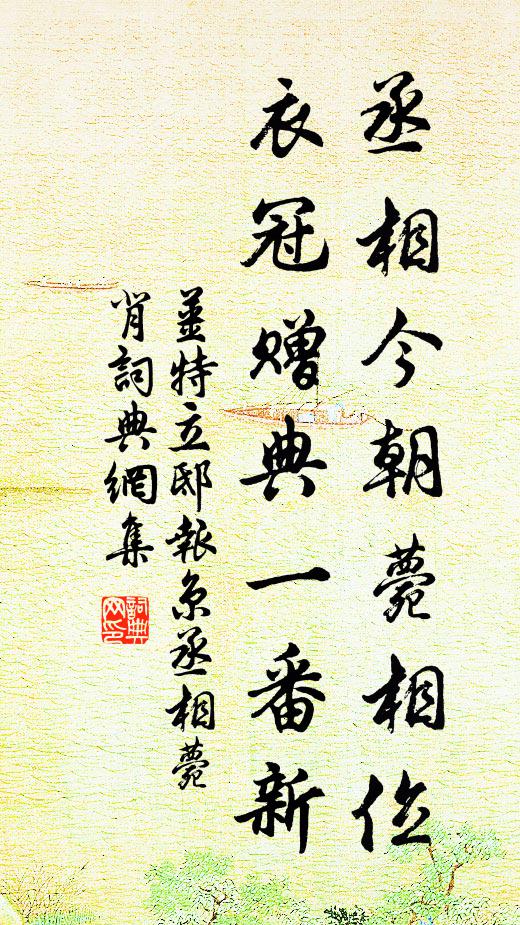 丞相今朝薨相位
衣冠贈典一番新
姜特立邸報京丞相薨
肖詞典網集
詞典
网印